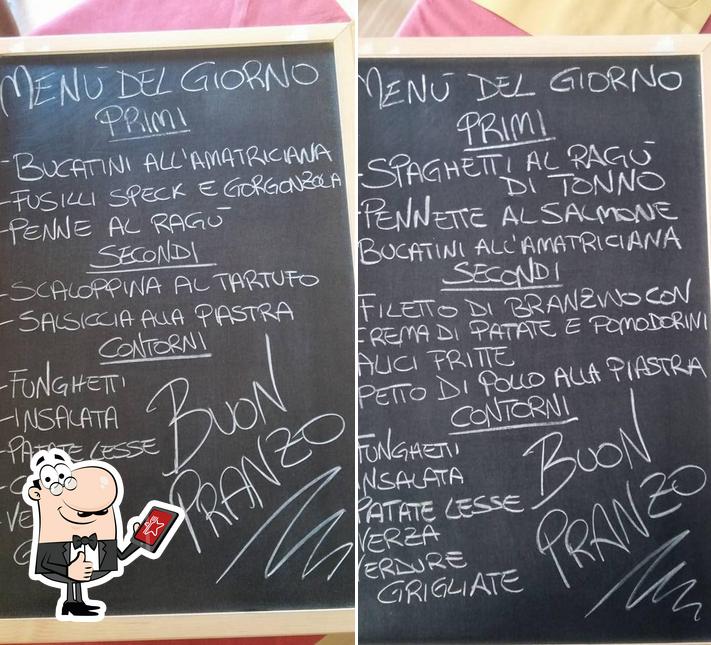 MENÙ DEL GIORNO
PRIMI
-BUCATINI ALL'AMATRICIANA
-FUSILLI SPECK E GORGONZOLA
-PENNE AL RAGÙ
SECONDI
-SCALOPPINA AL TARTUFO
-SALSICCIA ALLA PIASTRA
CONTORNI
-FUNGHETTI
-INSALATA
-PATATE LESSE
BUON
PRANZO
MENÙ DEL GIORNO
PRIMI
-SPAGHETTI AL RAGÙ
DI TONNO
-PENNETTE AL SALMONE
BUCATINI ALL'AMATRICIANA
SECONDI
FILETTO DI BRANZINO CON
CREMA DI PATATE E POMODORINI
ALICI FRITTE
PETTO DI POLLO ALLA PIASTRA
CONTORNI
FUNGHETTI
INSALATA
PATATE LESSE
VERZA
VERDURE
GRIGLIATE
BUON
PRANZO